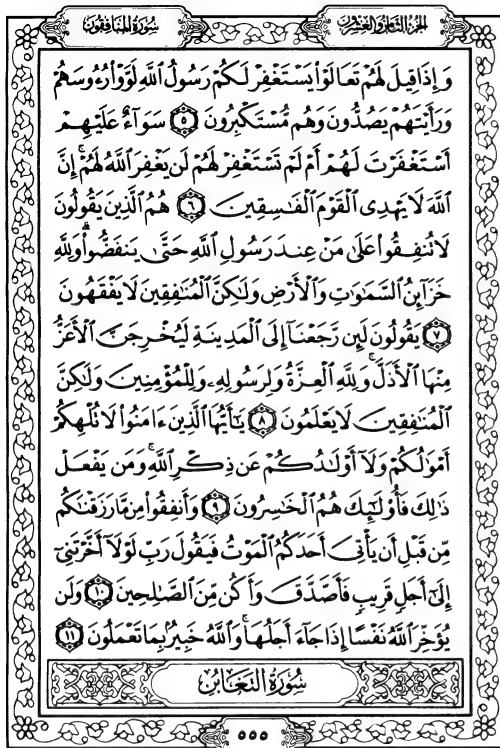 الجزء الثامن والعشرون سورة المنافقون
وَإِذَا قِيلَ لَهُمْ تَعَالَوْا۟ يَسْتَغْفِرْ لَكُمْ رَسُولُ ٱللَّهِ لَوَّوْا۟ رُءُوسَهُمْ
وَرَأَيْتَهُمْ يَصُدُّونَ وَهُم مُّسْتَكْبِرُونَ ۝٥ سَوَآءٌ عَلَيْهِمْ
أَسْتَغْفَرْتَ لَهُمْ أَمْ لَمْ تَسْتَغْفِرْ لَهُمْ لَن يَغْفِرَ ٱللَّهُ لَهُمْ ۚ إِنَّ
ٱللَّهَ لَا يَهْدِى ٱلْقَوْمَ ٱلْفَـٰسِقِينَ ۝٦ هُمُ ٱلَّذِينَ يَقُولُونَ
لَا تُنفِقُوا۟ عَلَىٰ مَنْ عِندَ رَسُولِ ٱللَّهِ حَتَّىٰ يَنفَضُّوا۟ ۗ وَلِلَّهِ
خَزَآئِنُ ٱلسَّمَـٰوَٰتِ وَٱلْأَرْضِ وَلَـٰكِنَّ ٱلْمُنَـٰفِقِينَ لَا يَفْقَهُونَ
۝٧ يَقُولُونَ لَئِن رَّجَعْنَآ إِلَى ٱلْمَدِينَةِ لَيُخْرِجَنَّ ٱلْأَعَزُّ
مِنْهَا ٱلْأَذَلَّ ۚ وَلِلَّهِ ٱلْعِزَّةُ وَلِرَسُولِهِۦ وَلِلْمُؤْمِنِينَ وَلَـٰكِنَّ
ٱلْمُنَـٰفِقِينَ لَا يَعْلَمُونَ ۝٨ يَـٰٓأَيُّهَا ٱلَّذِينَ ءَامَنُوا۟ لَا تُلْهِكُمْ
أَمْوَٰلُكُمْ وَلَآ أَوْلَـٰدُكُمْ عَن ذِكْرِ ٱللَّهِ ۚ وَمَن يَفْعَلْ
ذَٰلِكَ فَأُو۟لَـٰٓئِكَ هُمُ ٱلْخَـٰسِرُونَ ۝٩ وَأَنفِقُوا۟ مِن مَّا رَزَقْنَـٰكُم
مِّن قَبْلِ أَن يَأْتِىَ أَحَدَكُمُ ٱلْمَوْتُ فَيَقُولَ رَبِّ لَوْلَآ أَخَّرْتَنِىٓ
إِلَىٰٓ أَجَلٍ قَرِيبٍ فَأَصَّدَّقَ وَأَكُن مِّنَ ٱلصَّـٰلِحِينَ ۝١٠ وَلَن
يُؤَخِّرَ ٱللَّهُ نَفْسًا إِذَا جَآءَ أَجَلُهَا ۚ وَٱللَّهُ خَبِيرٌۢ بِمَا تَعْمَلُونَ ۝١١
سُورَةُ التَّغَابُنِ
٥٥٥